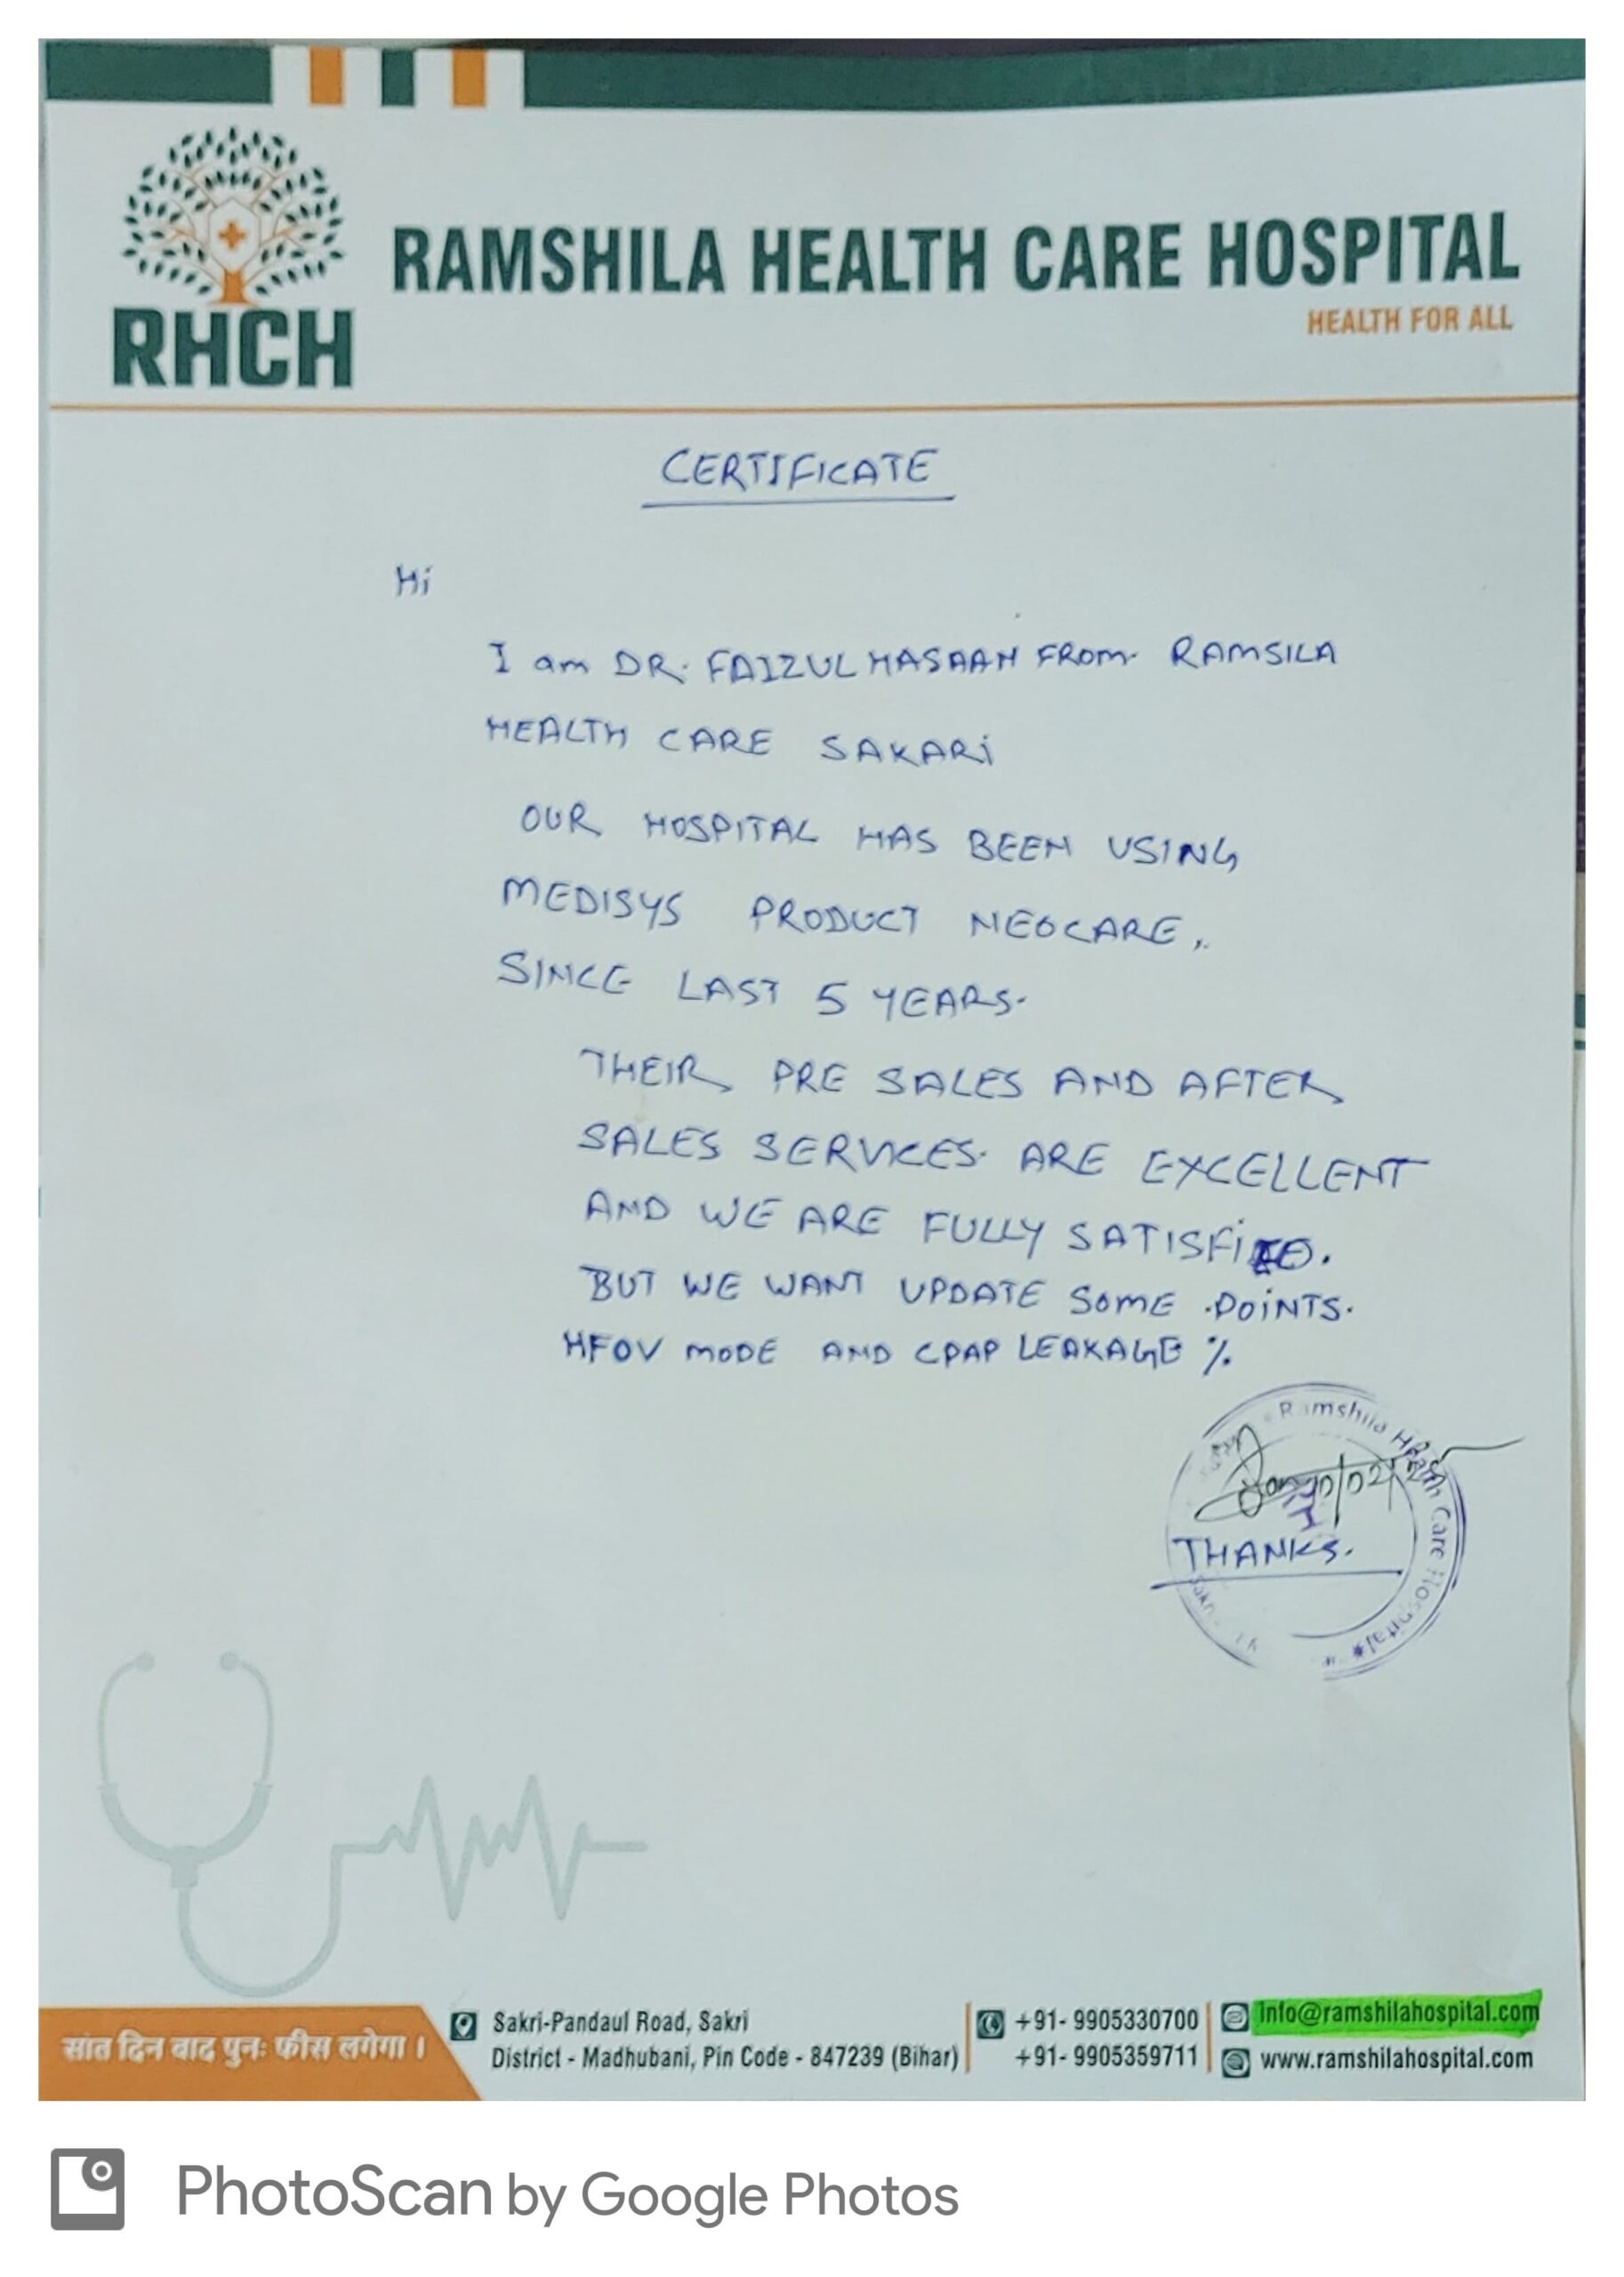 RHCH
RAMSHILA HEALTH CARE HOSPITAL
HEALTH FOR ALL
CERTIFICATE
Hi
I am DR. FAIZUL HASAAN FROM RAMSILA
HEALTH CARE SAKARi
OUR HOSPITAL HAS BEEN USING
MEDISYS PRODUCT NEOCARE,
SINCE LAST 5 YEARS.
THEIR PRE SALES AND AFTER
SALES SERVICES. ARE EXCELLENT
AND WE ARE FULLY SATISFiED.
BUT WE WANT UPDATE SOME .POiNTS.
HFOV MODE AND CPAP LEAKAGE %
Ramshila Health Care Hospital
THANKS.
सात दिन बाद पुनः फीस लगेगा ।
Sakri-Pandaul Road, Sakri
District - Madhubani, Pin Code - 847239 (Bihar)
+91- 9905330700
+91- 9905359711
info@ramshilahospital.com
www.ramshilahospital.com
PhotoScan by Google Photos